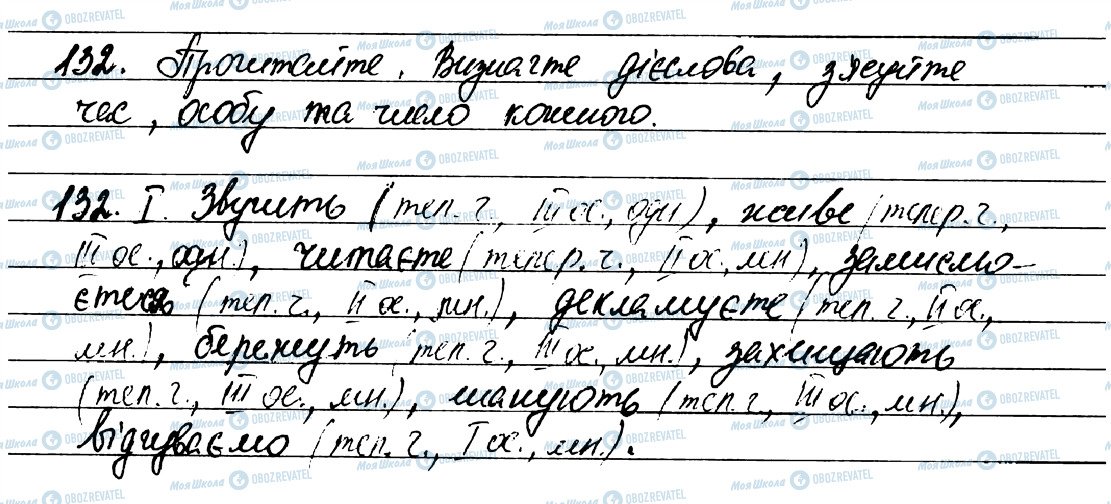 132. Прочитайте. Визначте дієслова, з'ясуйте
час, особу та число кожного.
132. I. Звучить (теп. ч., III ос., одн.), живе (тепер. ч.,
III ос., одн.), читаєте (тепер. ч., II ос., мн.), замислю-
єтесь (теп. ч., II ос., мн.), декламуєте (теп. ч., II ос.,
мн.), бережуть (теп. ч., III ос., мн.), захищають
(теп. ч., III ос., мн.), шанують (теп. ч., III ос., мн.),
відчуваємо (теп. ч., I ос., мн.).